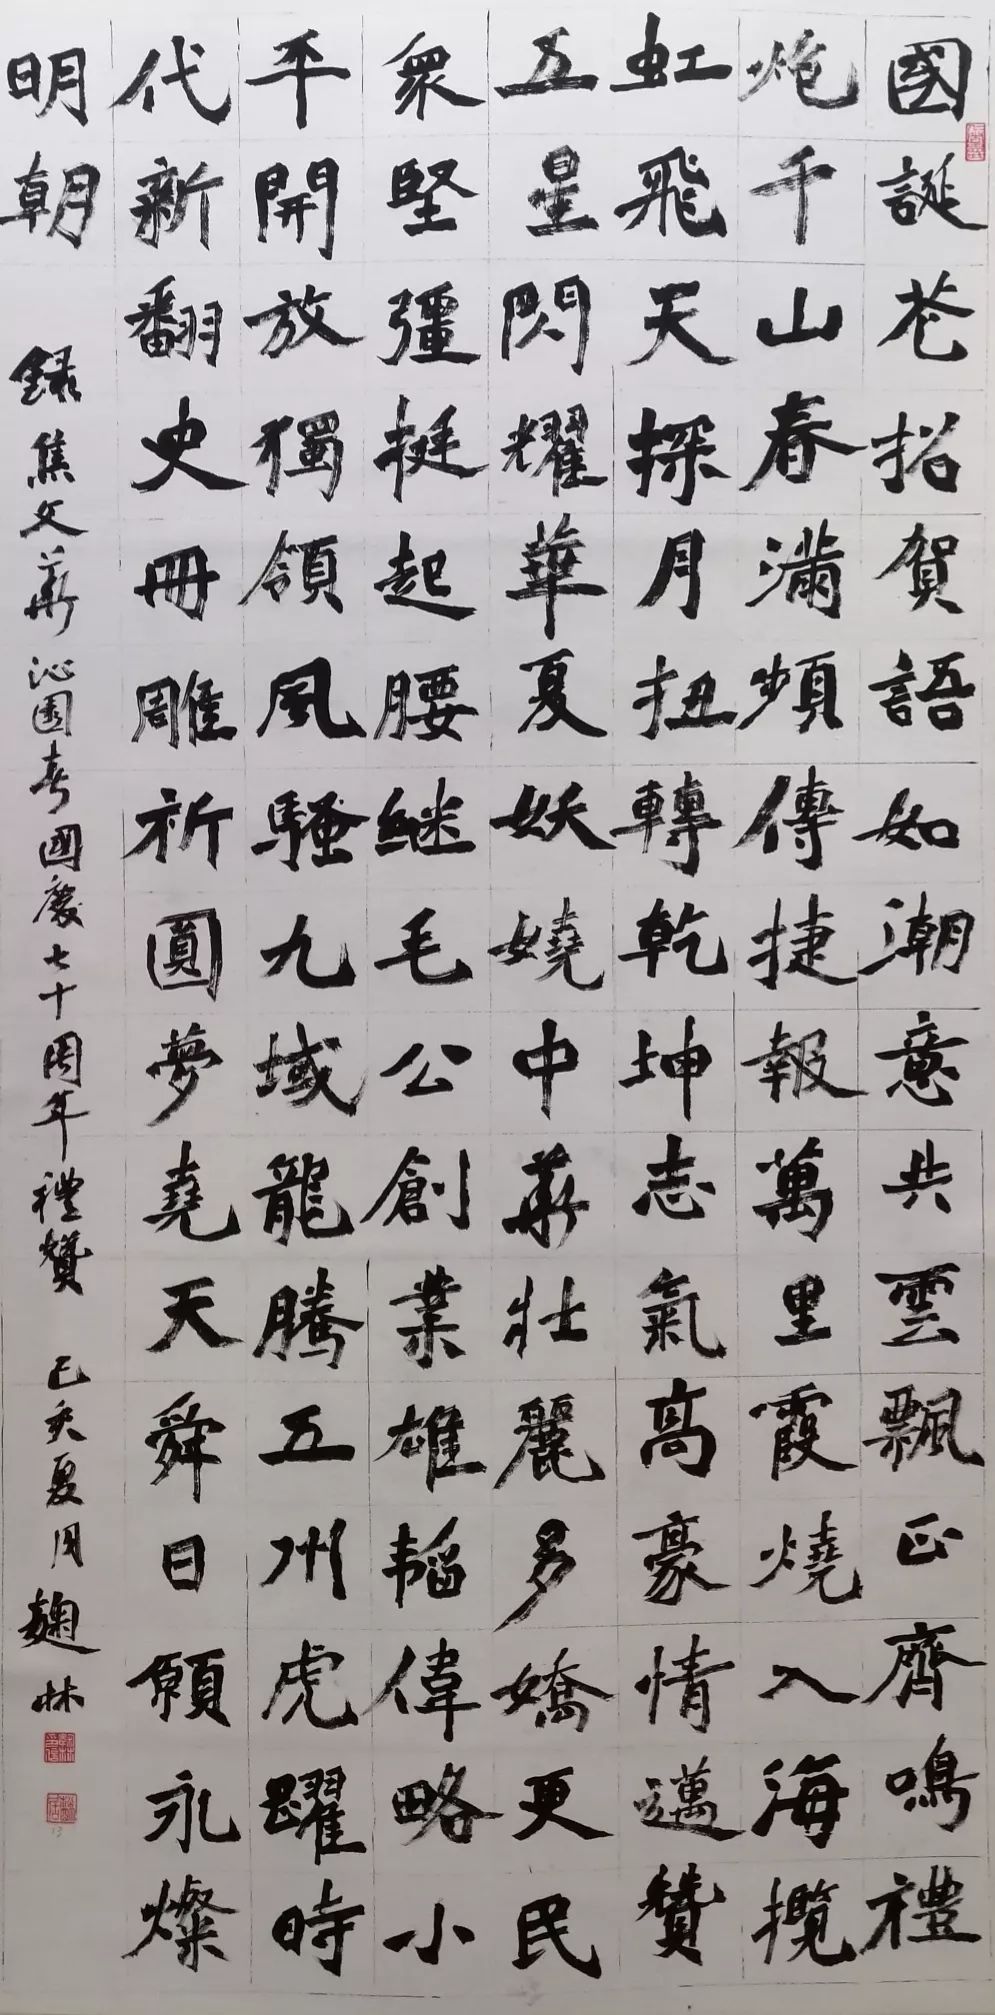 國誕花招賀語如潮意共雲飄正齊鳴禮
炮千山春滿頻傳捷報萬里霞燒入海攬
虹飛天探月扭轉乾坤志氣高豪情邁贊
五星閃耀華夏妖嬈中華壯麗多嬌更民
衆堅彊挺起腰繼毛公創業雄韜偉略小
平開放獨領風騷九域龍騰五州虎躍時
代新翻史冊雕祈圓夢堯天舜日願永燦
明朝
錄焦文華沁園春國慶七十周年禮贊 己亥夏月麹林